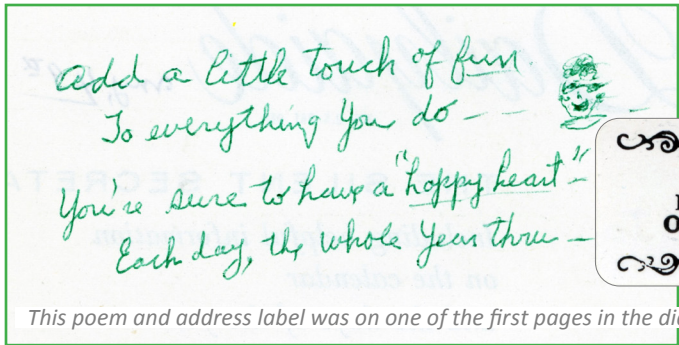 Add a little touch of fun.
To everything you do -
You're sure to have a "happy heart" -
Each day, the whole year thru -
This poem and address label was on one of the first pages in the